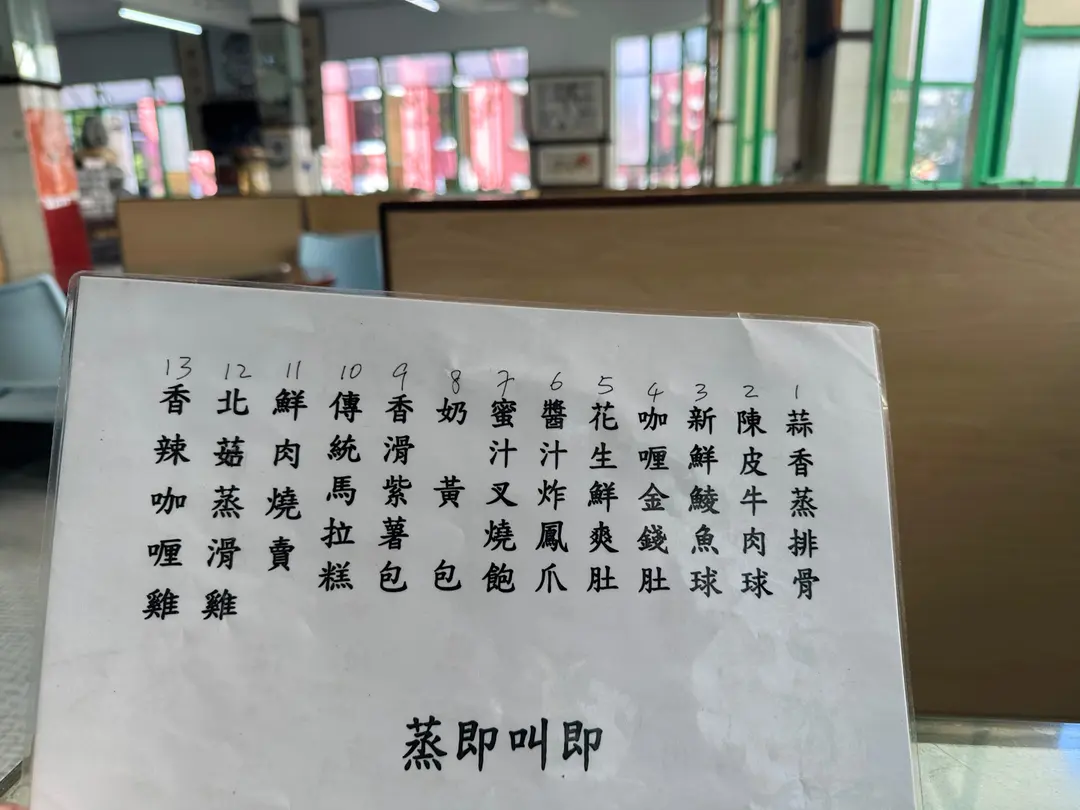 1 蒜香蒸排骨
2 陳皮牛肉球
3 新鮮鯪魚球
4 咖喱金錢肚
5 花生鮮爽肚
6 醬汁炸鳳爪
7 蜜汁叉燒飽
8 奶黃包
9 香滑紫薯包
10 傳統馬拉糕
11 鮮肉燒賣
12 北菇蒸滑雞
13 香辣咖喱雞
即叫即蒸